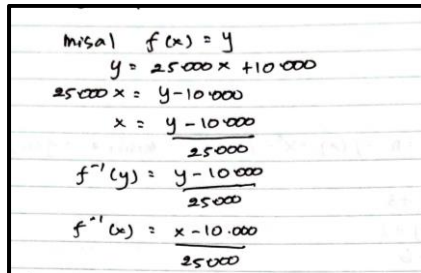 misal f(x) = y
y = 25.000 x + 10.000
25.000 x = y - 10.000
x = y - 10.000
25.000
f⁻¹(y) = y - 10.000
25.000
f⁻¹(x) = x - 10.000
25.000